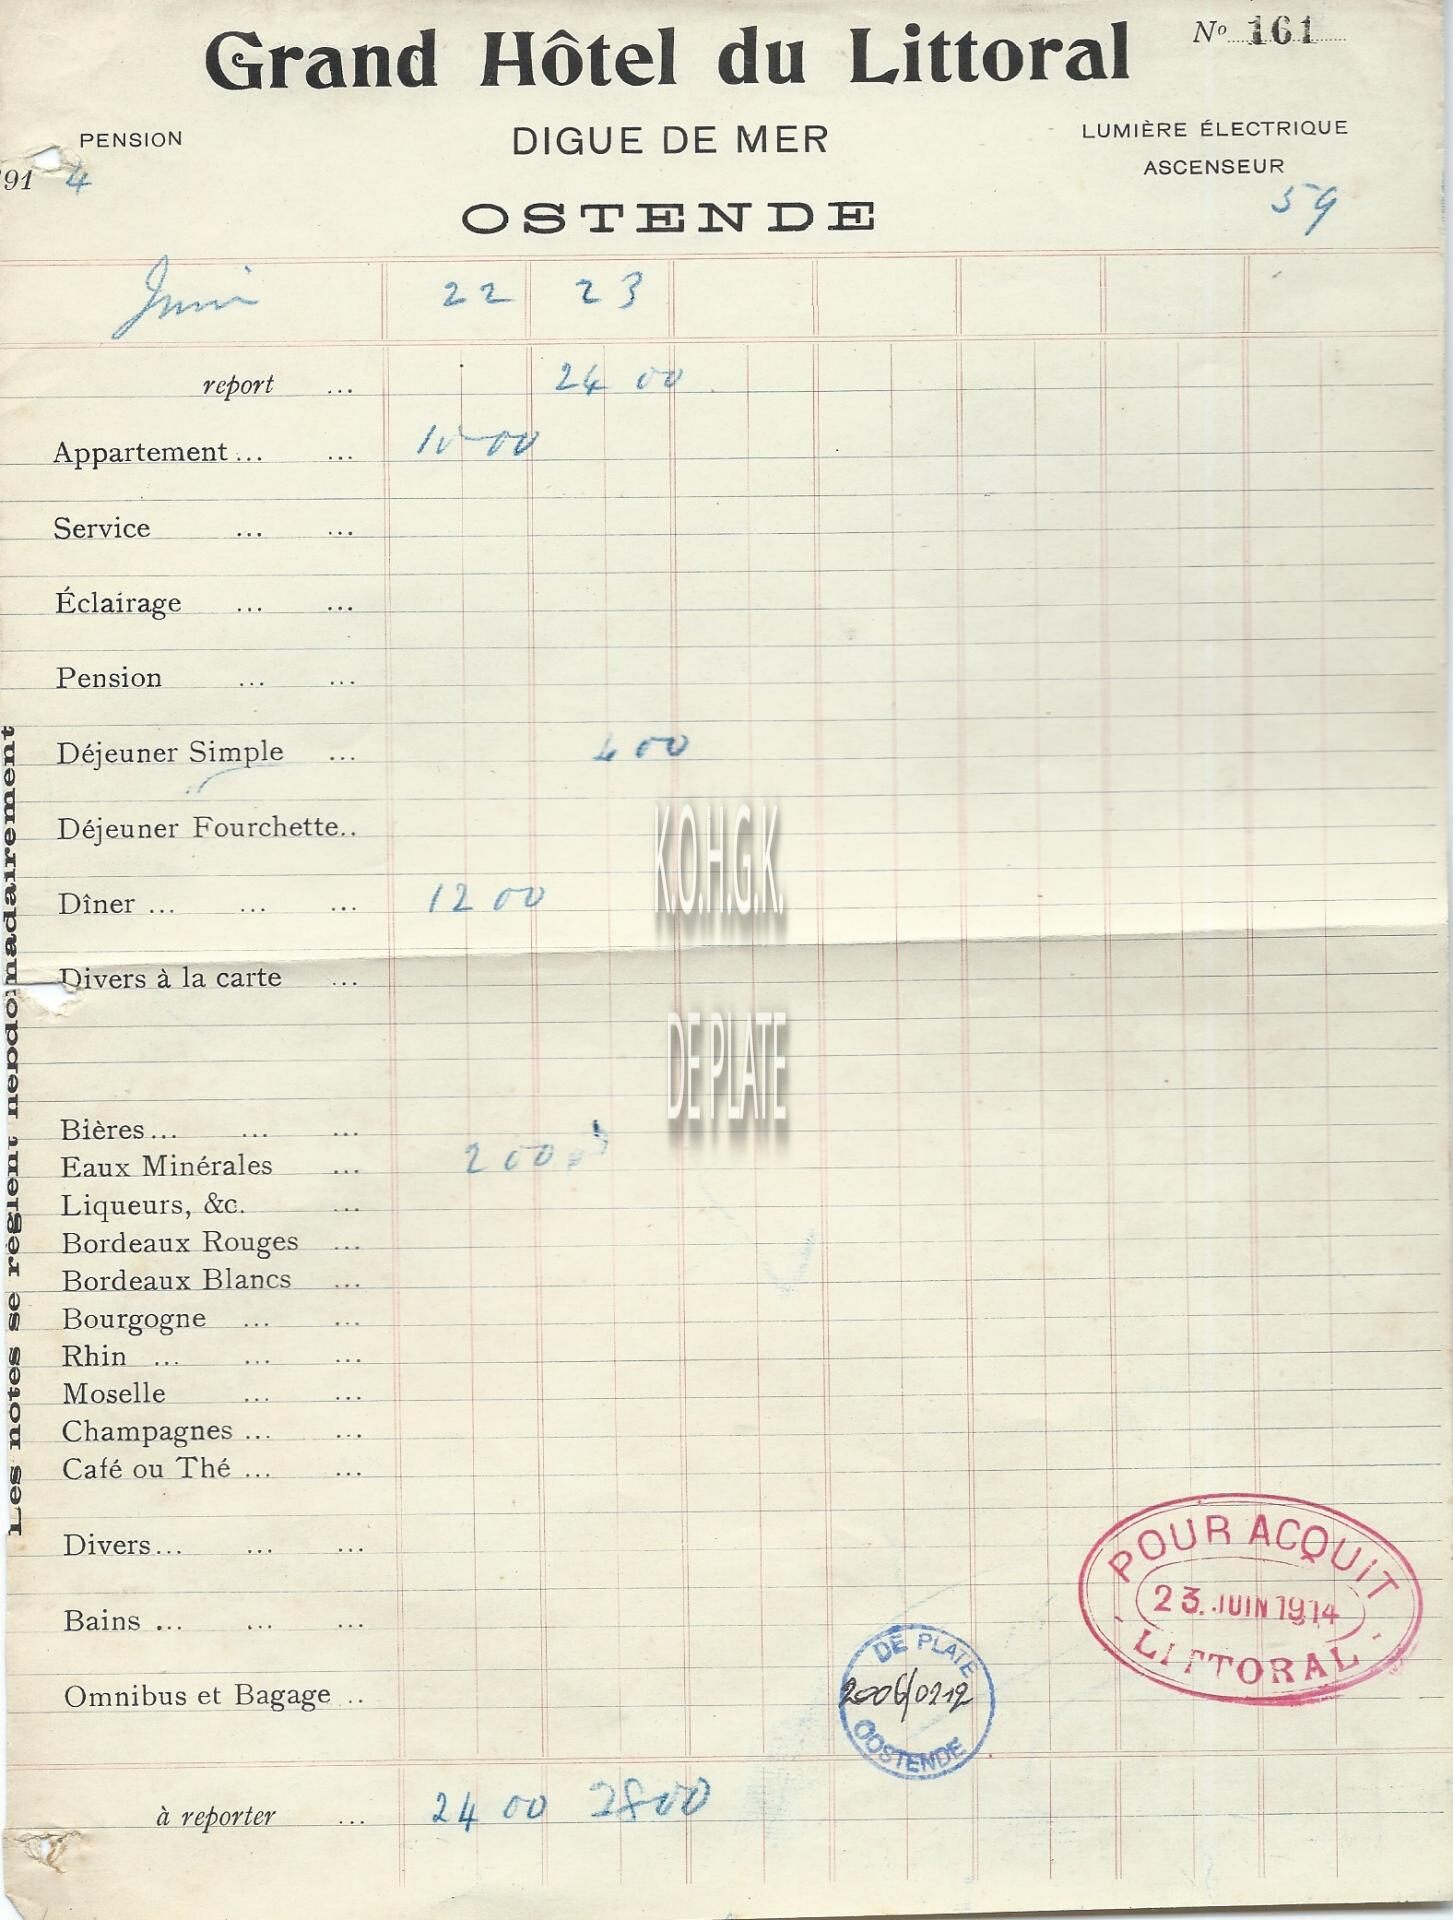 Grand Hôtel du Littoral
No 161
PENSION
DIGUE DE MER
LUMIÈRE ÉLECTRIQUE
ASCENSEUR
91 4
OSTENDE
59
Juin 22 23
report ... 24 00
Appartement ... ... 10 00
Service ... ...
Éclairage ... ...
Pension ... ...
Déjeuner Simple ... 4 00
Déjeuner Fourchette..
Dîner ... ... ... 12 00
Divers à la carte ...
Bières... ... ...
Eaux Minérales ... 2 00
Liqueurs, &c. ...
Bordeaux Rouges ...
Bordeaux Blancs ...
Bourgogne ... ...
Rhin ... ... ...
Moselle ... ...
Champagnes ... ...
Café ou Thé ... ...
Divers... ... ...
Bains ... ... ...
Omnibus et Bagage ..
à reporter ... 24 00 28 00
Les notes se règlent hebdomadairement
K.O.H.G.K.
DE PLATE
POUR ACQUIT
23. JUIN 1914
LITTORAL
DE PLATE
2006/0212
OOSTENDE